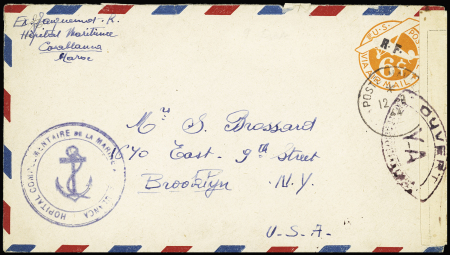 Ex. Jacquemot. R.
Hôpital Maritime
Casablanca
Maroc
U.S. POSTAGE
VIA AIR MAIL
6¢
R.F.
POSTE
12
OUVERT
HOPITAL COMPLEMENTAIRE DE LA MARINE
Mrs S. Brossard
1670 East. 9th Street
Brooklyn N.Y.
U.S.A.